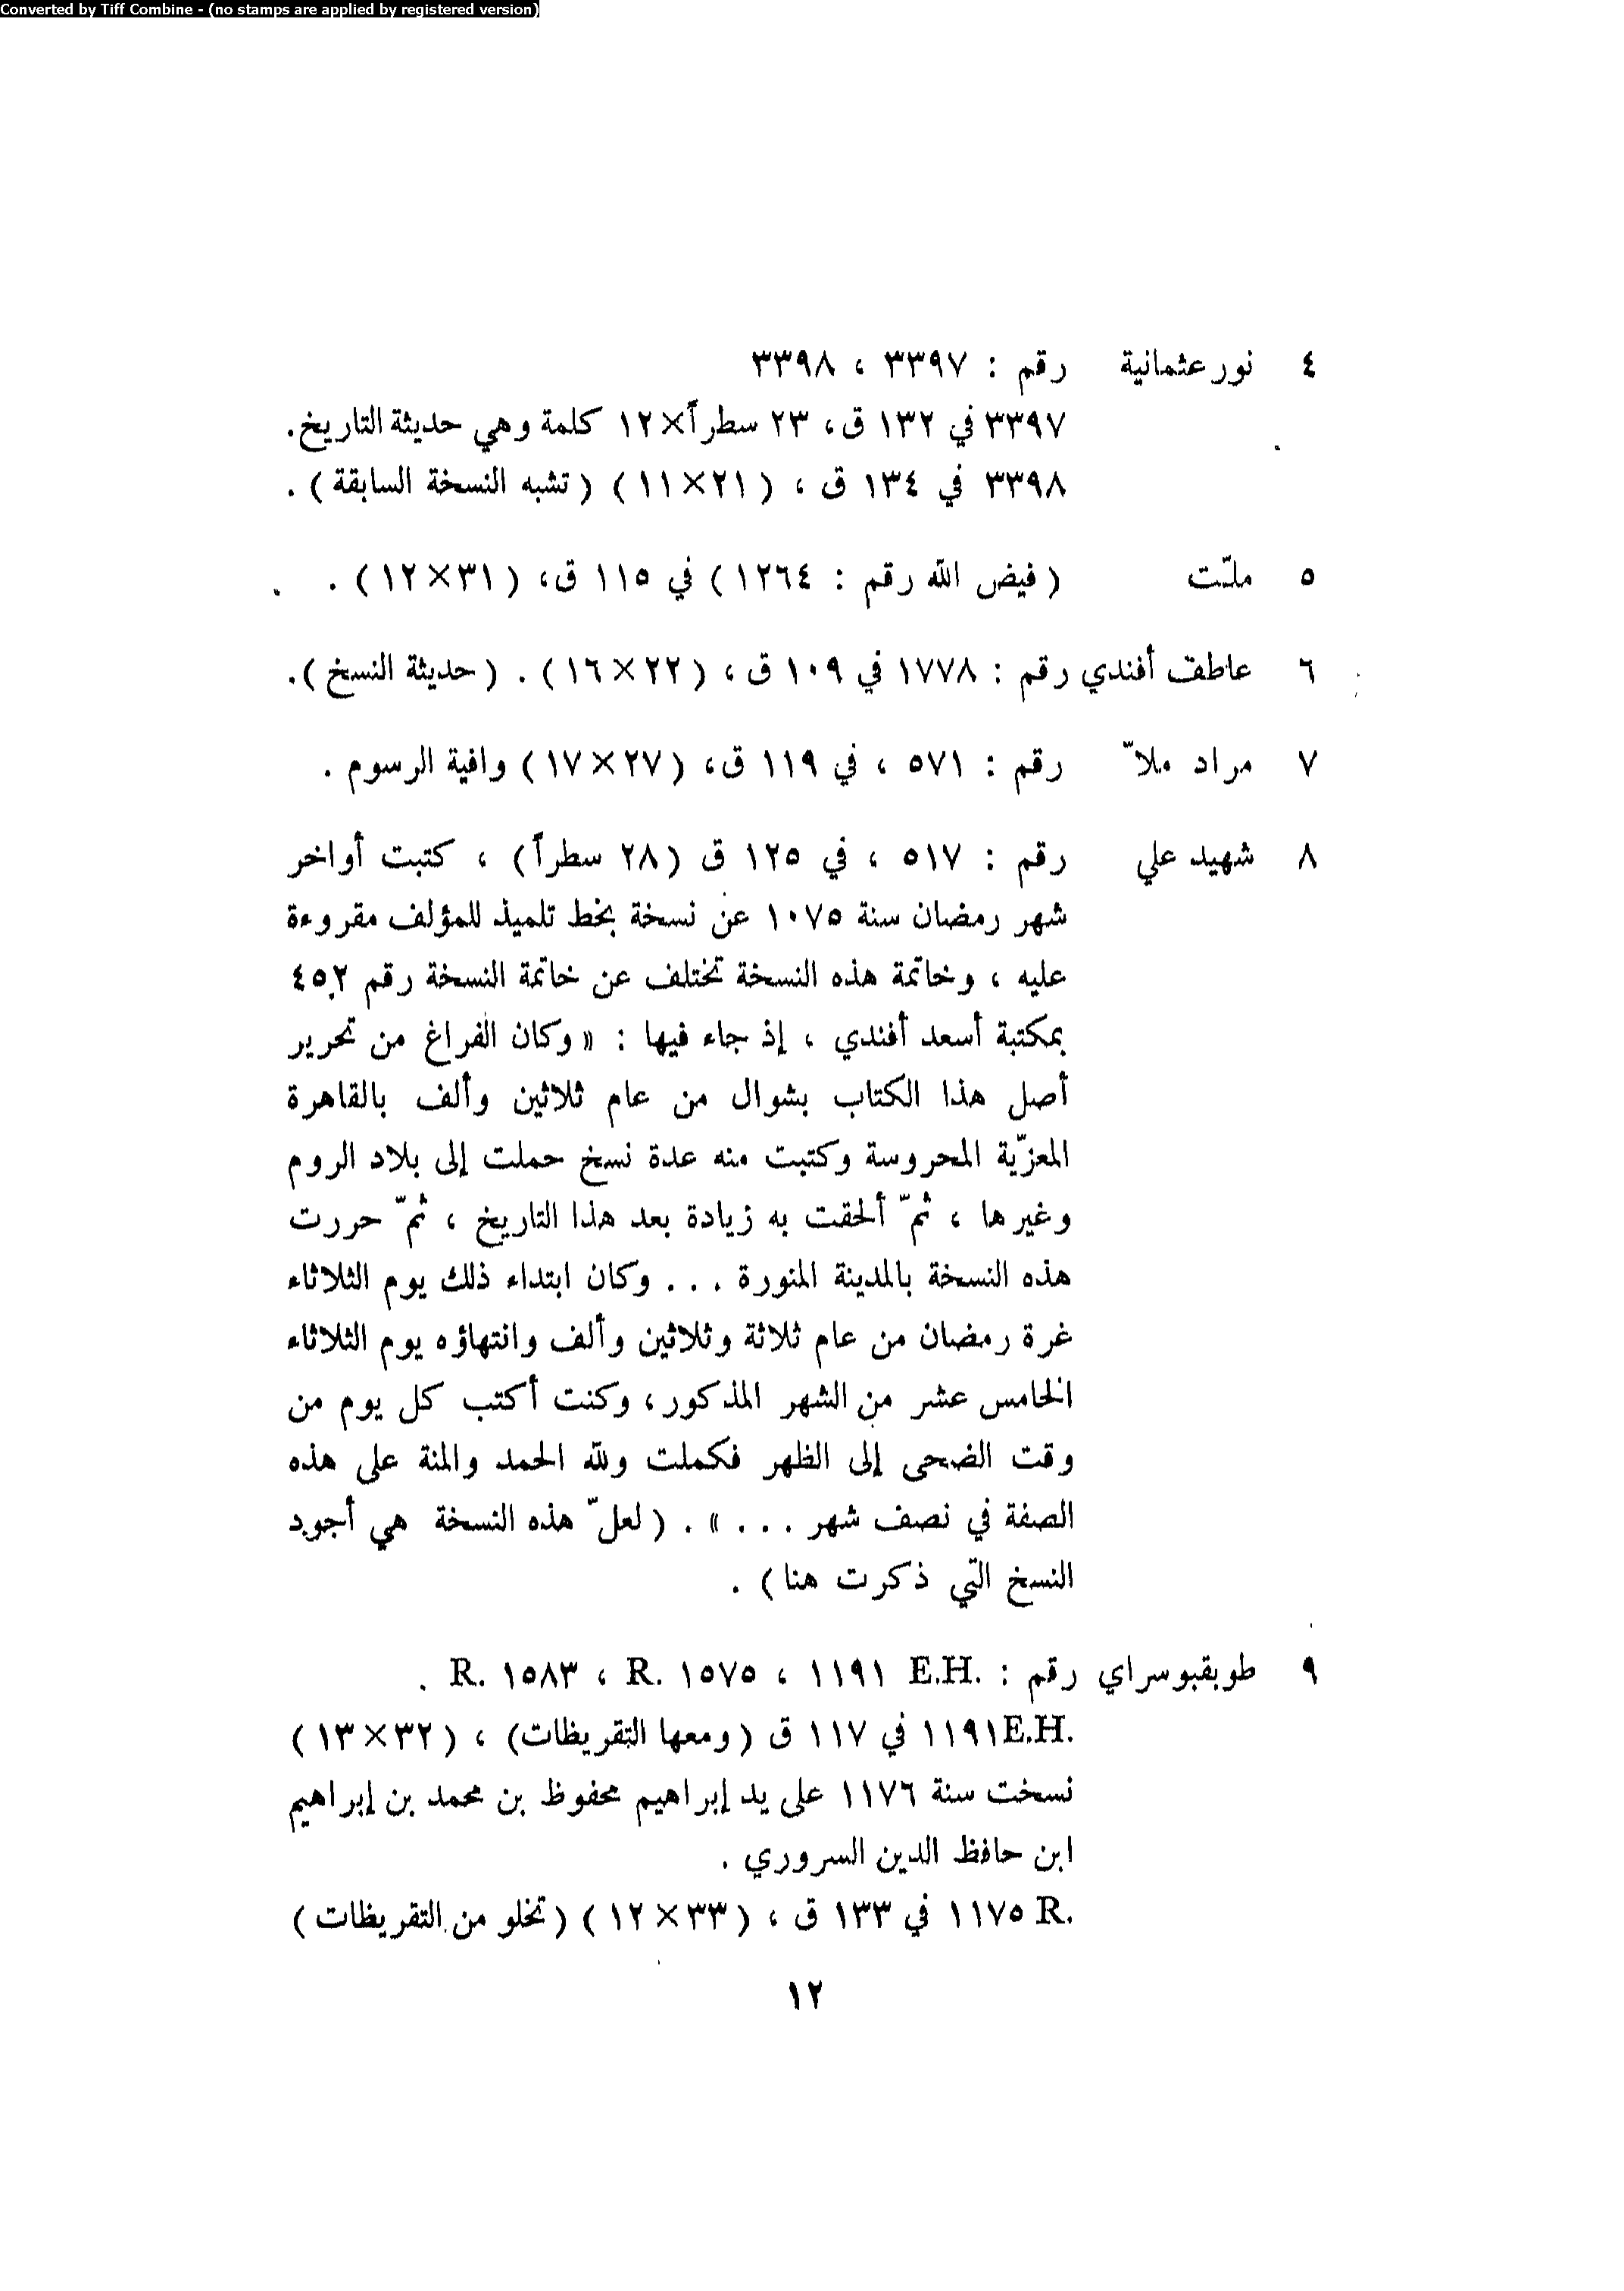 Converted by Tiff Combine - (no stamps are applied by registered version)
٤ نور عثمانية رقم : ٣٣٩٧ ، ٣٣٩٨
٣٣٩٧ في ١٣٢ ق، ٢٣ سطراً×١٢ كلمة وهي حديثة التاريخ.
٣٣٩٨ في ١٣٤ ق ، (٢١×١١) (تشبه النسخة السابقة) .
٥ ملّت (فيض الله رقم : ١٢٦٤) في ١١٥ ق، (٣١×١٢) .
٦ عاطف أفندي رقم : ١٧٧٨ في ١٠٩ ق ، (٢٢×١٦) . (حديثة النسخ).
٧ مراد ملاّ رقم : ٥٧١ ، في ١١٩ ق، (٢٧×١٧) وافية الرسوم .
٨ شهيد علي رقم : ٥١٧ ، في ١٢٥ ق (٢٨ سطراً) ، كتبت أواخر
شهر رمضان سنة ١٠٧٥ عن نسخة بخط تلميذ للمؤلف مقروءة
عليه ، وخاتمة هذه النسخة تختلف عن خاتمة النسخة رقم ٤٥٢
بمكتبة أسعد أفندي ، إذ جاء فيها : « وكان الفراغ من تحرير
أصل هذا الكتاب بشوال من عام ثلاثين وألف بالقاهرة
المعزّية المحروسة وكتبت منه عدة نسخ حملت إلى بلاد الروم
وغيرها ، ثمّ ألحقت به زيادة بعد هذا التاريخ ، ثمّ حررت
هذه النسخة بالمدينة المنورة ... وكان ابتداء ذلك يوم الثلاثاء
غرة رمضان من عام ثلاثة وثلاثين وألف وانتهاؤه يوم الثلاثاء
الخامس عشر من الشهر المذكور، وكنت أكتب كل يوم من
وقت الضحى إلى الظهر فكملت ولله الحمد والمنة على هذه
الصفة في نصف شهر ... » . (لعلّ هذه النسخة هي أجود
النسخ التي ذكرت هنا) .
٩ طوبقبوسراي رقم : .E.H ١١٩١ ، R. ١٥٧٥ ، R. ١٥٨٣ .
.E.H١١٩١ في ١١٧ ق (ومعها التقريظات) ، (٣٢×١٣)
نسخت سنة ١١٧٦ على يد إبراهيم محفوظ بن محمد بن إبراهيم
ابن حافظ الدين السروري .
.R ١١٧٥ في ١٣٣ ق ، (٣٣×١٢) (تخلو من التقريظات)
١٢